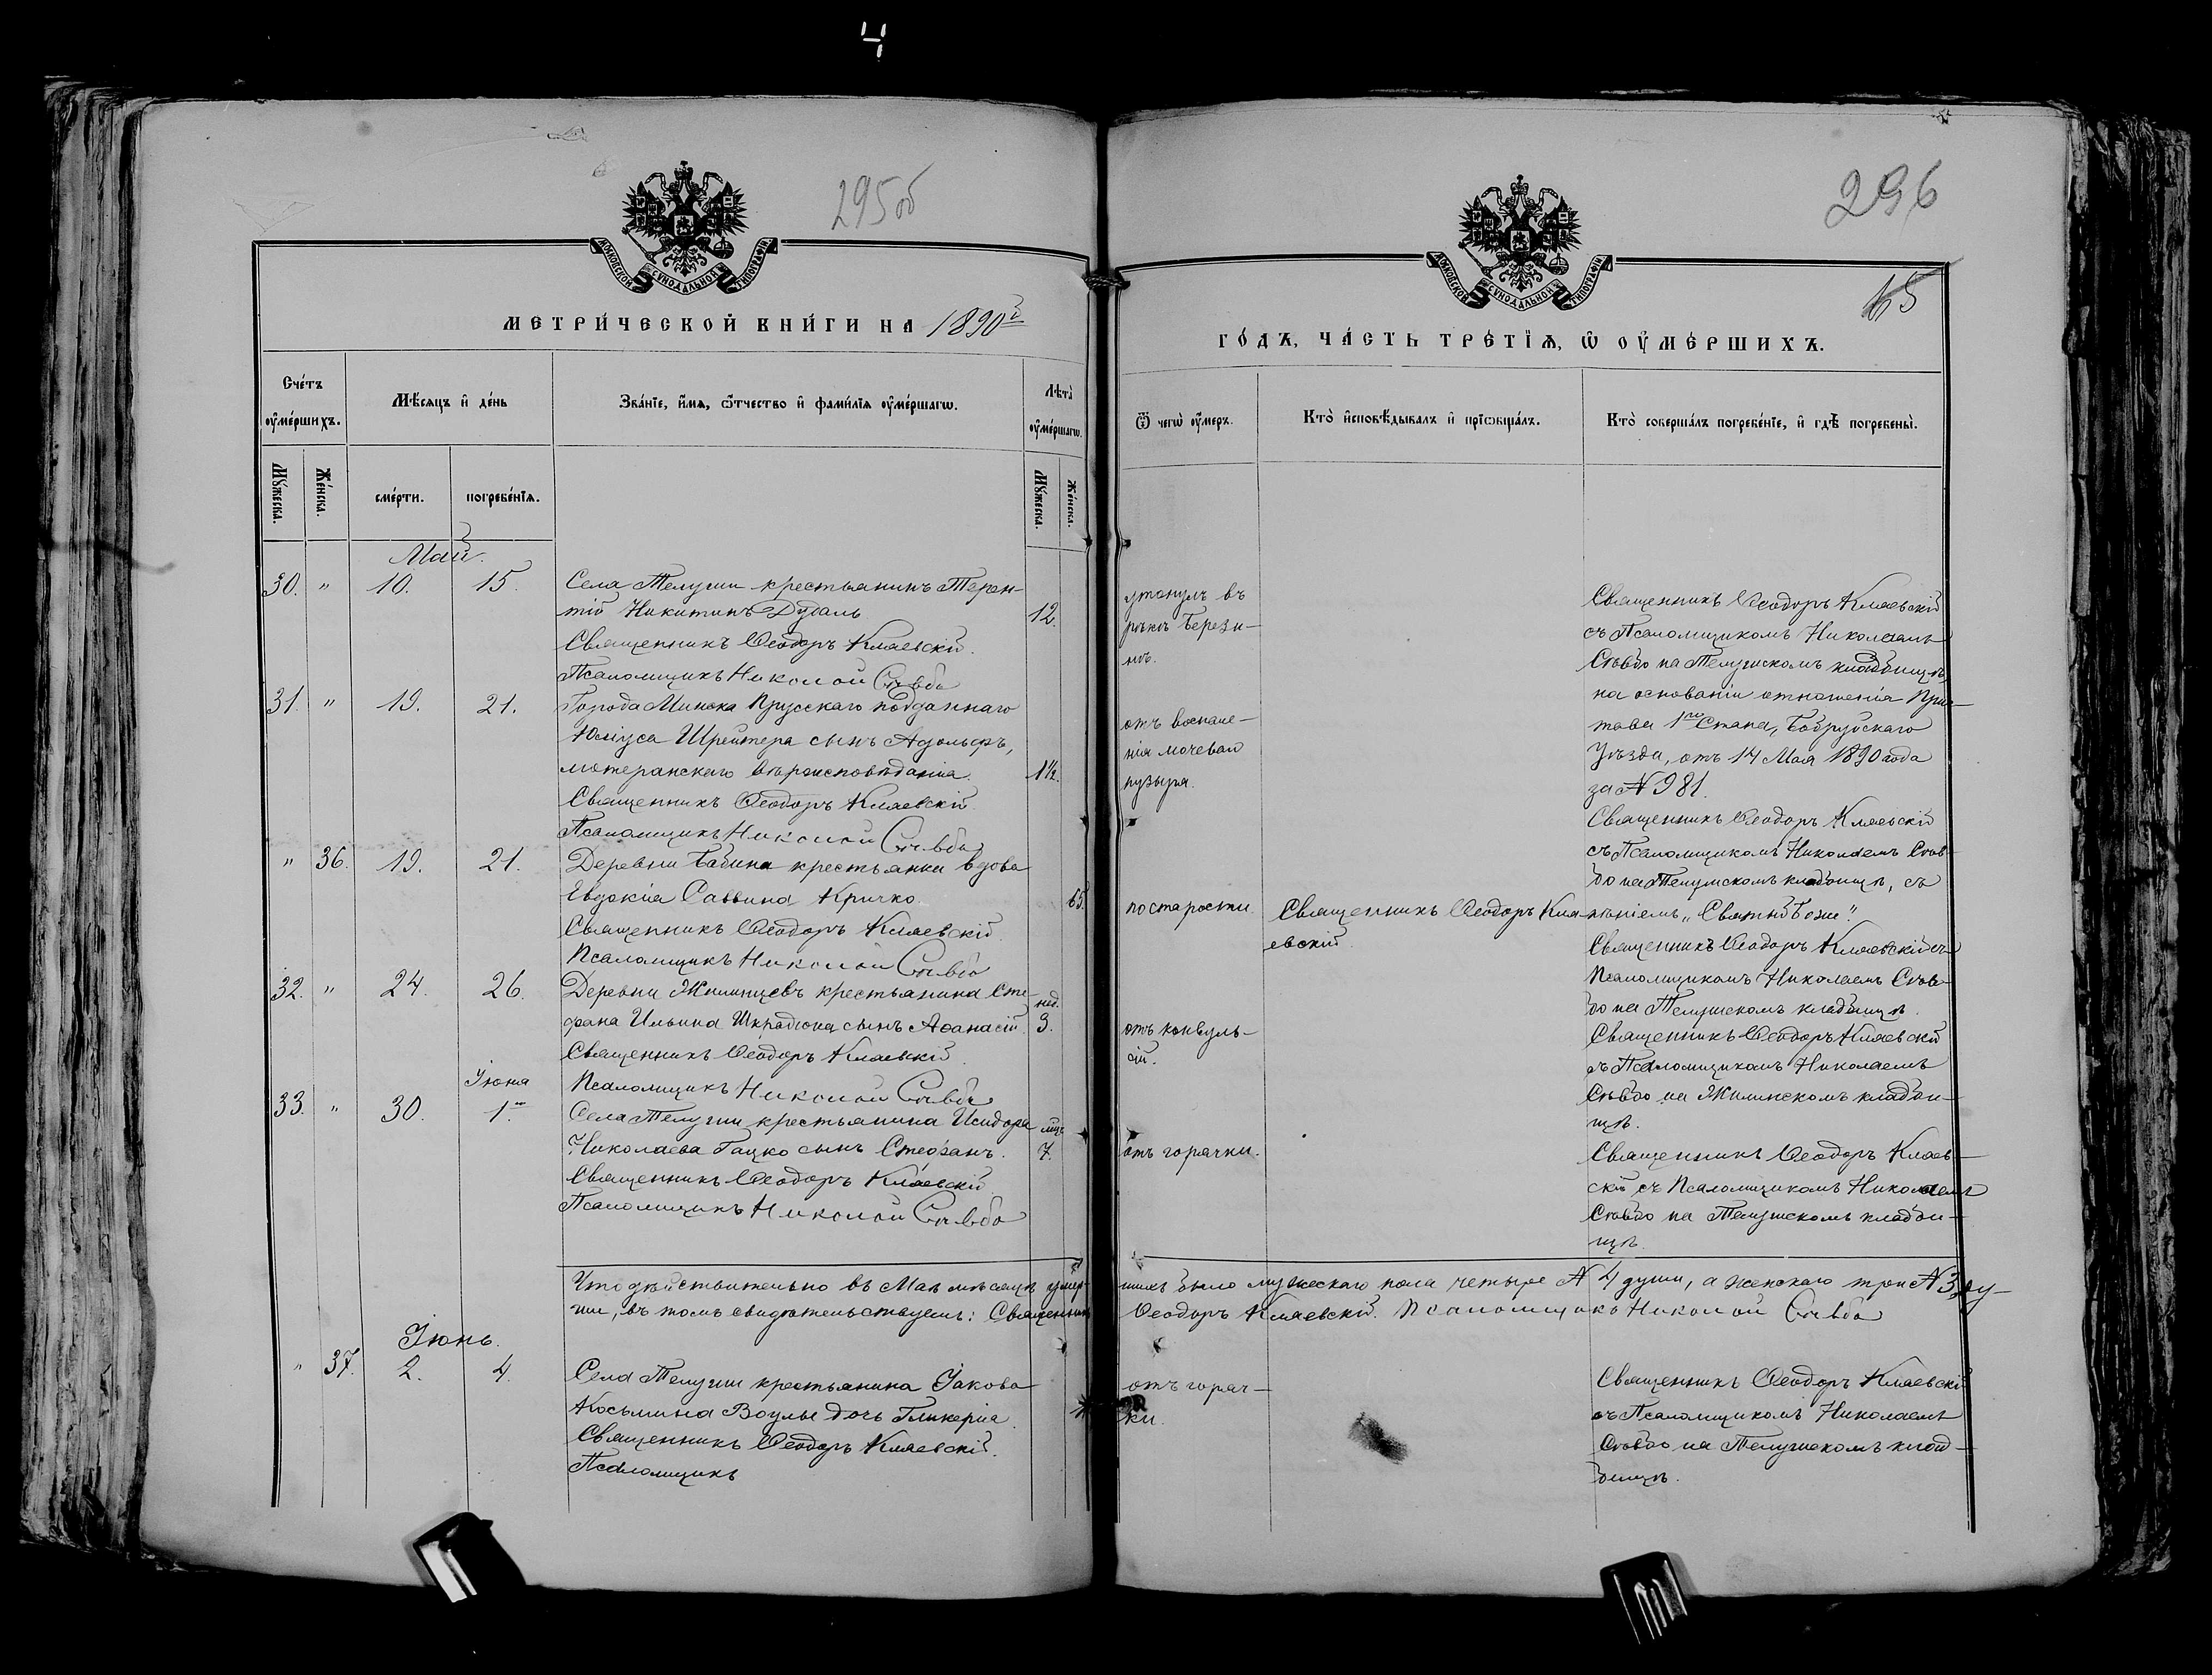 295об
296
65
МЕТРИ́ЧЕСКОЙ КНИ́ГИ НА 1890й
ГО́ДЪ, ЧА́СТЬ ТРЕ́ТЇѦ, Ѽ ОУ҆МЕ́РШИХЪ.
МОСКОВСКОЙ СѴНОДАЛЬНОЙ ТИПОГРАФІИ
МОСКОВСКОЙ СѴНОДАЛЬНОЙ ТИПОГРАФІИ
Сче́тъ
оу҆ме́ршихъ.
Мѣ́сяцъ и҆ де́нь
Зва́нїе, и҆́мя, ѻ҆́тчество и҆ фами́лїя оу҆ме́ршагѡ.
Лѣ̑та
оу҆ме́ршагѡ.
Мꙋ́жеска.
Же́нска.
сме́рти.
погребе́нїя.
Мꙋ́жеска.
Же́нска.
Ѿ чегѡ̀ оу҆́меръ.
Кто̀ и҆сповѣ́дывалъ и҆ прїѡбща́лъ.
Кто̀ соверша́лъ погребе́нїе, и҆ гдѣ̀ погребены̀.
Май.
30. " 10. 15. Села Телуши крестьянинъ Терен-
тій Никитинъ Дубаль 12.
Священникъ Ѳеодоръ Кляевскій.
Псаломщикъ Николай Сѣвбо
утонулъ въ
рѣкѣ Берези-
нѣ.
Священникъ Ѳеодоръ Кляевскій
съ Псаломщикомъ Николаемъ
Сѣвбо на Телушскомъ кладбищѣ,
на основаніи отношенія При-
става 1го Стана, Бобруйскаго
Уѣзда, отъ 14 Мая 1890 года
за № 981.
31. " 19. 21. Города Минска Прусскаго подданнаго
Юліуса Шрейтера сынъ Адольфъ,
лютеранскаго вѣроисповѣданія. 1½.
Священникъ Ѳеодоръ Кляевскій.
Псаломщикъ Николай Сѣвбо
отъ воспале-
нія мочеваго
пузыря.
Священникъ Ѳеодоръ Кляевскій
съ Псаломщикомъ Николаемъ Сѣв-
бо на Телушскомъ кладбищѣ, съ
пѣніемъ „Святый Боже".
" 36. 19. 21. Деревни Бабина крестьянка вдова
Евдокія Саввина Кричко. 65.
Священникъ Ѳеодоръ Кляевскій.
Псаломщикъ Николай Сѣвбо
по старости.
Священникъ Ѳеодоръ Кля-
евскій.
Священникъ Ѳеодоръ Кляевскій съ
Псаломщикомъ Николаемъ Сѣв-
бо на Телушскомъ кладбищѣ.
32. " 24. 26. Деревни Жилинцевъ крестьянина Сте- нед.
фана Ильина Шкрадюка сынъ Аѳанасій. 3.
Священникъ Ѳеодоръ Кляевскій.
Псаломщикъ Николай Сѣвбо
отъ конвуль-
сій.
Священникъ Ѳеодоръ Кляевскій
съ Псаломщикомъ Николаемъ
Сѣвбо на Жилинскомъ кладби-
щѣ.
Іюня
33. " 30. 1го Села Телуши крестьянина Исидора мѣс.
Николаева Гацко сынъ Стефанъ. 7.
Священникъ Ѳеодоръ Кляевскій.
Псаломщикъ Николай Сѣвбо
отъ горячки.
Священникъ Ѳеодоръ Кляев-
скій съ Псаломщикомъ Николаемъ
Сѣвбо на Телушскомъ кладби-
щѣ.
Что дѣйствительно въ Маѣ мѣсяцѣ умер- шихъ было мужескаго пола четыре № 4 души, а женскаго три № 3 ду-
ши, въ томъ свидѣтельствуемъ: Священникъ Ѳеодоръ Кляевскій. Псаломщикъ Николай Сѣвбо
Іюнь.
" 37. 2. 4. Села Телуши крестьянина Іакова
Косьмина Воулы дочь Гликерія
Священникъ Ѳеодоръ Кляевскій.
Псаломщикъ
отъ горяч-
ки.
Священникъ Ѳеодоръ Кляевскій
съ Псаломщикомъ Николаемъ
Сѣвбо на Телушскомъ клад-
бищѣ.